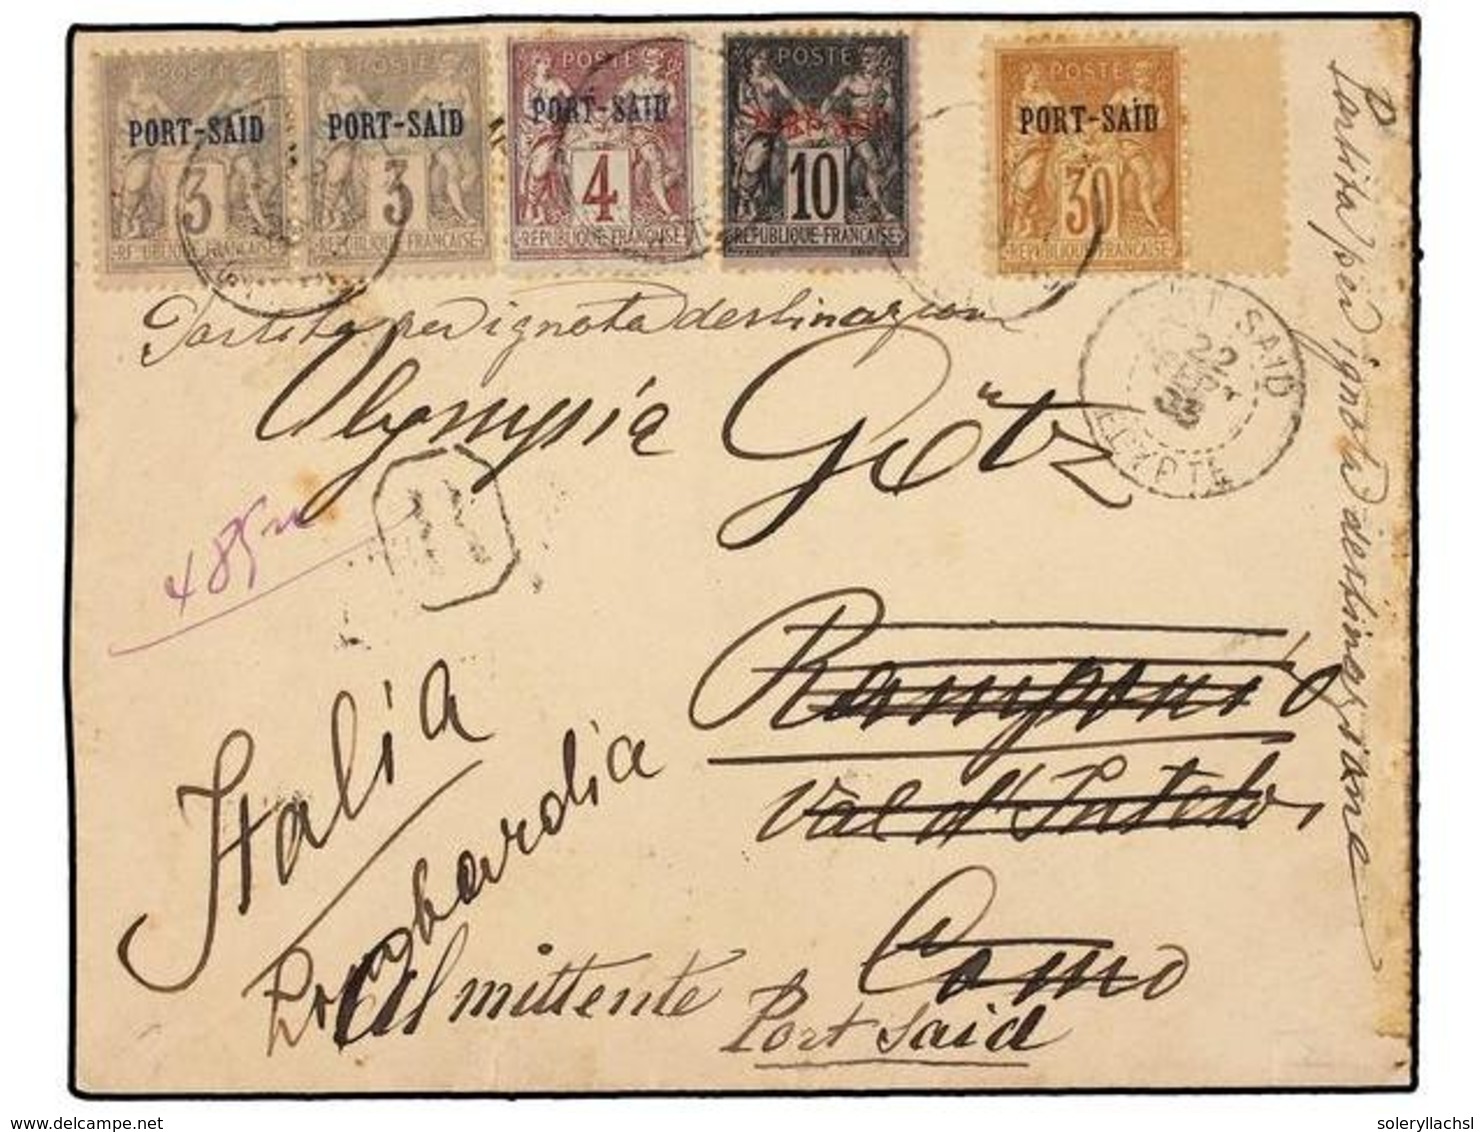 POSTE
POSTE
POSTE
POSTE
POSTE
PORT-SAÏD
PORT-SAÏD
PORT-SAÏD
PORT-SAÏD
PORT-SAÏD
3
3
4
10
30
REPUBLIQUE-FRANÇAISE
REPUBLIQUE-FRANÇAISE
REPUBLIQUE-FRANÇAISE
REPUBLIQUE-FRANÇAISE
REPUBLIQUE-FRANÇAISE
Partita per ignota destinazione
Partita per ignota destinazione
Olympia Götz
SAID
22
EGYPTE
485
R
Ramponio
Val d'Intelvi
Como
Italia
Lombardia
Al mittente
Port Said
delcampe.net
soleryllachsl